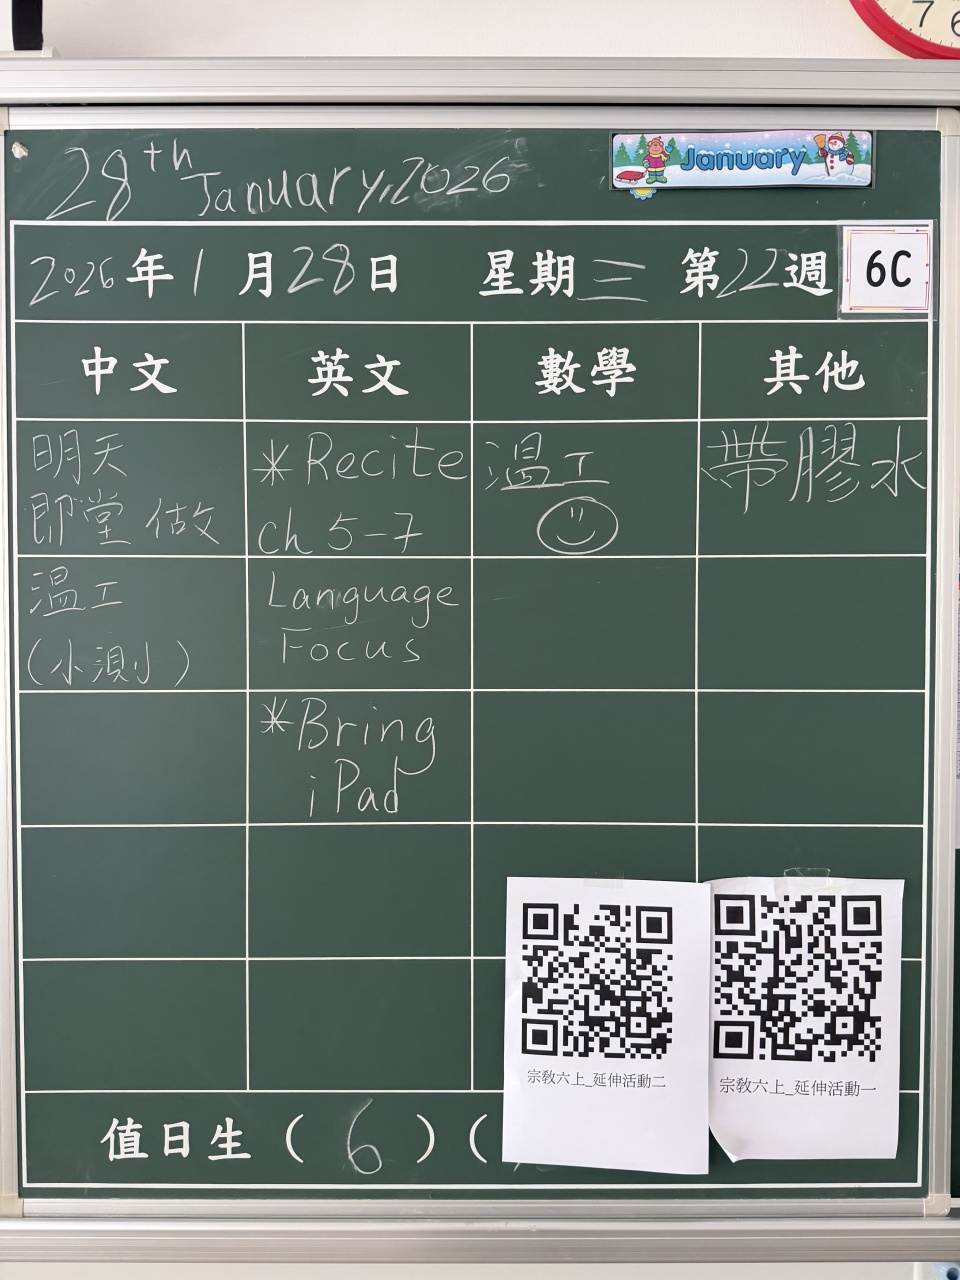 7 6
28th January, 2026
January
2026年1月28日 星期三 第22週
6C
中文 英文 數學 其他
明天
即堂做
*Recite
ch 5-7
溫工
帶膠水
溫工
(小測)
Language
Focus
*Bring
iPad
宗教六上_延伸活動二
宗教六上_延伸活動一
值日生(6)(